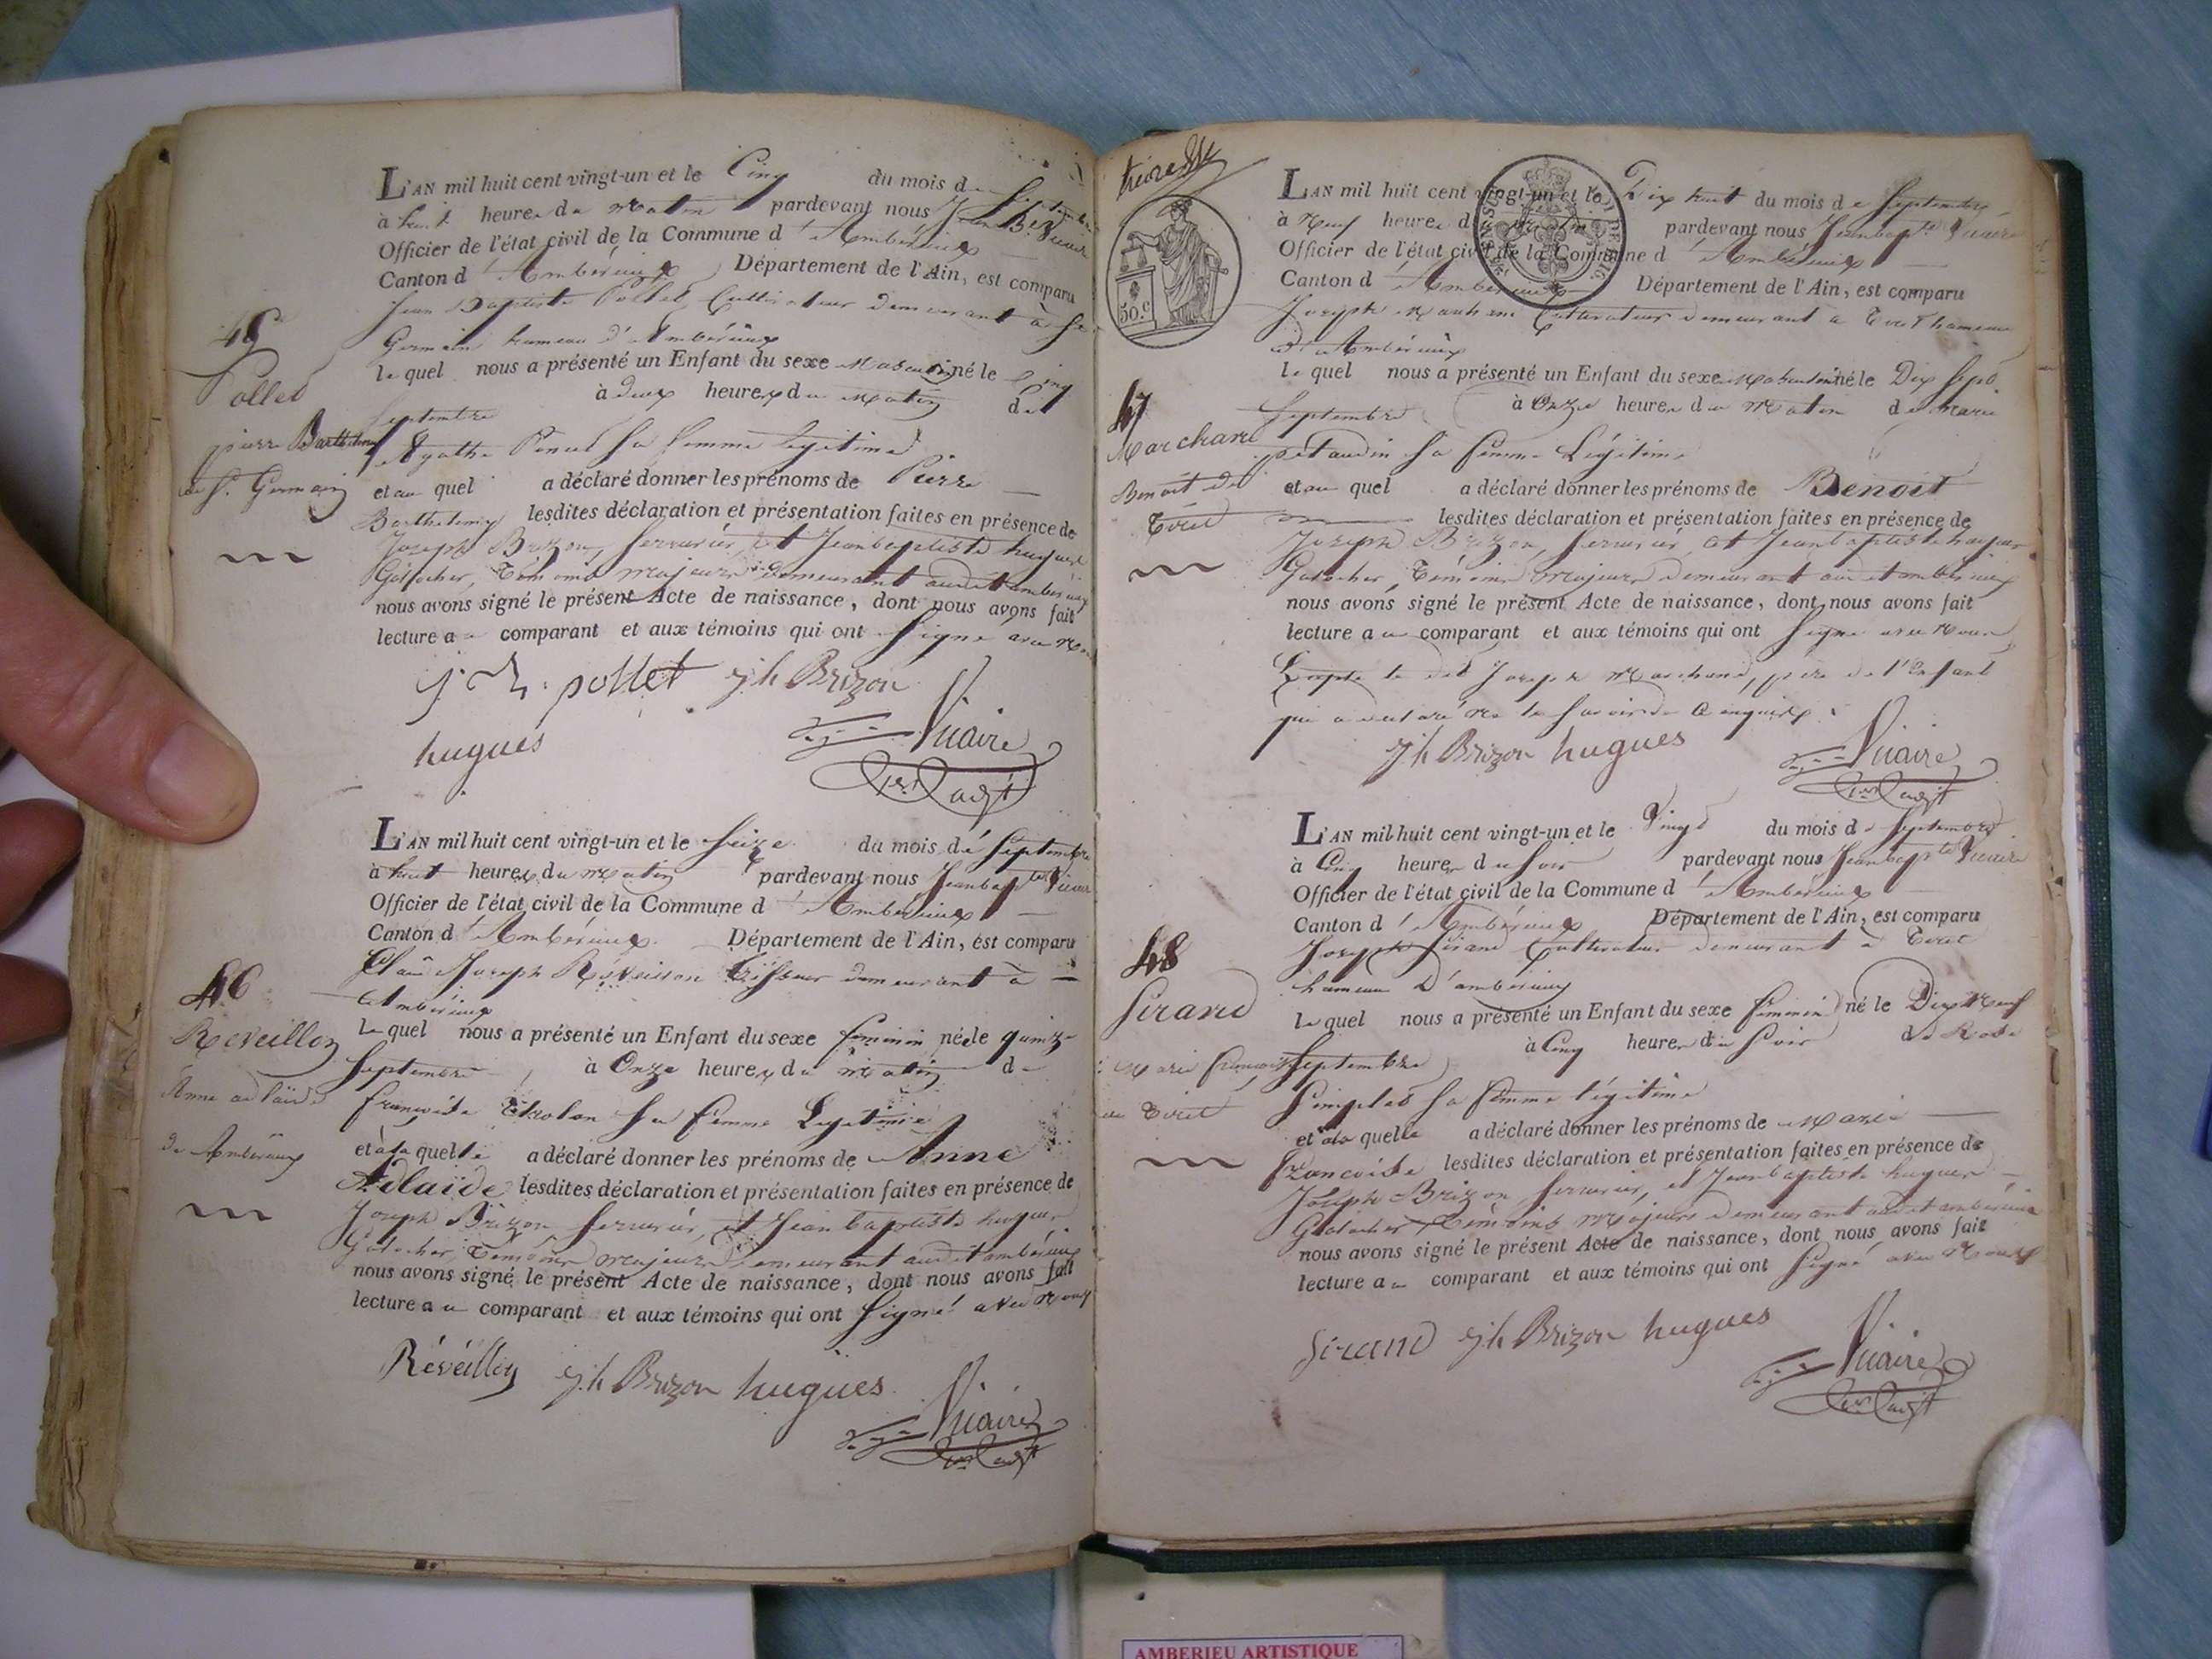 L'AN mil huit cent vingt-un et le Cinq du mois de Septembre
à huit heures du matin pardevant nous Jean Bte Vicaire
Officier de l'état civil de la Commune d'Ambérieux
Canton d'Ambérieux Département de l'Ain, est comparu
Jean Baptiste Pollet Cultivateur demeurant à St
Germain hameau d'Ambérieux
45
Pollet
pierre Barthelemy
de St. Germain
le quel nous a présenté un Enfant du sexe Masculin né le Cinq
Septembre à deux heures du Matin de
Agathe sa femme legitime
et au quel a déclaré donner les prénoms de Pierre
Barthelemy lesdites déclaration et présentation faites en présence de
Joseph Brizon, serrurier, et Jean baptiste hugues
Galocher, Témoins majeurs demeurant audit ambérieux
nous avons signé le présent Acte de naissance, dont nous avons fait
lecture au comparant et aux témoins qui ont Signé avec Nous
pollet jh Brizon
hugues Vicaire
adjt
L'AN mil huit cent vingt-un et le Seize du mois de Septembre
à huit heures du matin pardevant nous Jean bapte Vicaire
Officier de l'état civil de la Commune d'Ambérieux
Canton d'Ambérieux Département de l'Ain, est comparu
46
Reveillon
Anne adelaïde
de Ambérieux
Joseph Réveillon Tisseur demeurant à
Ambérieux
le quel nous a présenté un Enfant du sexe feminin né le quinze
Septembre à Onze heures du Matin de
francoise sa femme Legitime
et à la quelle a déclaré donner les prénoms de Anne
Adelaïde lesdites déclaration et présentation faites en présence de
Joseph Brizon serrurier, et Jean baptiste hugues
Galocher, Temoins majeurs demeurant audit ambérieux
nous avons signé le présent Acte de naissance, dont nous avons fait
lecture au comparant et aux témoins qui ont Signé avec Nous
Réveillon jh Brizon hugues
Vicaire
adjt
50.c
L'AN mil huit cent vingt-un et le Dix huit du mois de Septembre
à Neuf heures du pardevant nous Jean bapte Vicaire
Officier de l'état civil de la Commune d'Ambérieux
Canton d'Ambérieux Département de l'Ain, est comparu
Joseph Marchand Cultivateur demeurant à Tiret hameau
d'Ambérieux
47
Marchand
Benoit de
Tiret
le quel nous a présenté un Enfant du sexe Masculin né le Dix Sept
Septembre à Onze heures du Matin de Marie
petaudin sa femme Légitime
et au quel a déclaré donner les prénoms de Benoit
lesdites déclaration et présentation faites en présence de
Joseph Brizon, serrurier, et Jean baptiste hugues
Galocher, Témoins Majeurs demeurant audit ambérieux
nous avons signé le présent Acte de naissance, dont nous avons fait
lecture au comparant et aux témoins qui ont Signé avec Nous
Excepté le dit Joseph Marchand, père de l'Enfant
qui a declaré ne le Savoir de ce enquis
jh Brizon hugues Vicaire
adjt
L'AN mil huit cent vingt-un et le Vingt du mois de Septembre
à Cinq heures du Soir pardevant nous Jean bapte Vicaire
Officier de l'état civil de la Commune d'Ambérieux
Canton d'Ambérieux Département de l'Ain, est comparu
Joseph Sirand Cultivateur demeurant à Tiret
hameau d'ambérieux
48
Sirand
Marie francoise
de Tiret
le quel nous a présenté un Enfant du sexe feminin né le Dix Neuf
Septembre à Cinq heures du Soir de Rose
Simplet sa femme légitime
et à la quelle a déclaré donner les prénoms de Marie
francoise lesdites déclaration et présentation faites en présence de
Joseph Brizon serrurier, et Jean baptiste hugues
Galocher Témoins Majeurs demeurant audit ambérieux
nous avons signé le présent Acte de naissance, dont nous avons fait
lecture au comparant et aux témoins qui ont Signé avec Nous
Sirand jh Brizon hugues
Vicaire
adjt
AMBERIEU ARTISTIQUE